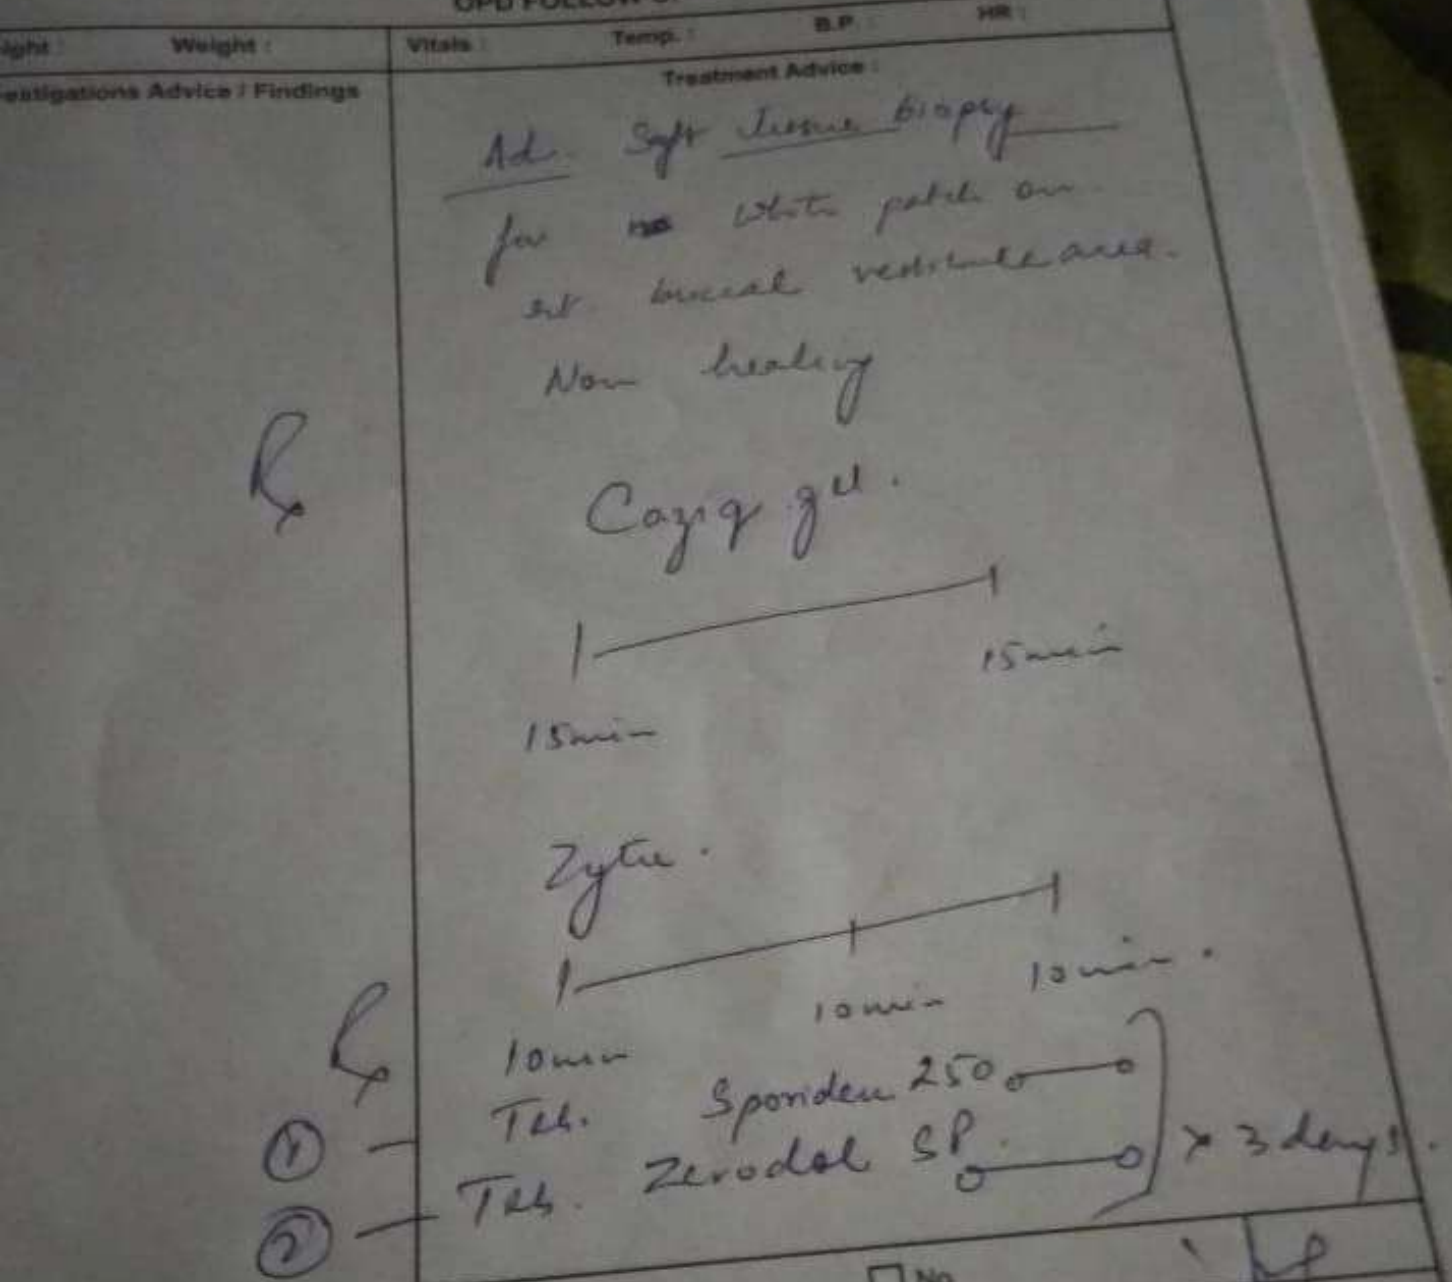 OPD FOLLOW
Weight : Vitals : Temp. : B.P. : HR :
Advice / Findings Treatment Advice :
Ad. Soft tissue biopsy
for white patch on
buccal vestibule area.
Non healing
Rx
gel.
15min
15min
Zytee.
10min.
10min
10min
Rx
1 Tab. 250
2 Tab. Zerodol SP. x 3 days.
No